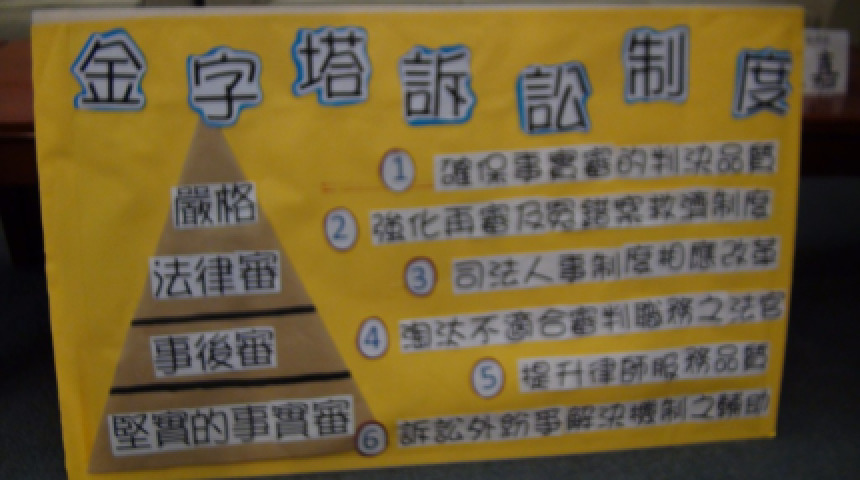 金字塔訴訟制度
嚴格
法律審
事後審
堅實的事實審
1 確保事實審的判決品質
2 強化再審及冤錯案救濟制度
3 司法人事制度相應改革
4 淘汰不適合審判職務之法官
5 提升律師服務品質
6 訴訟外紛爭解決機制之輔助